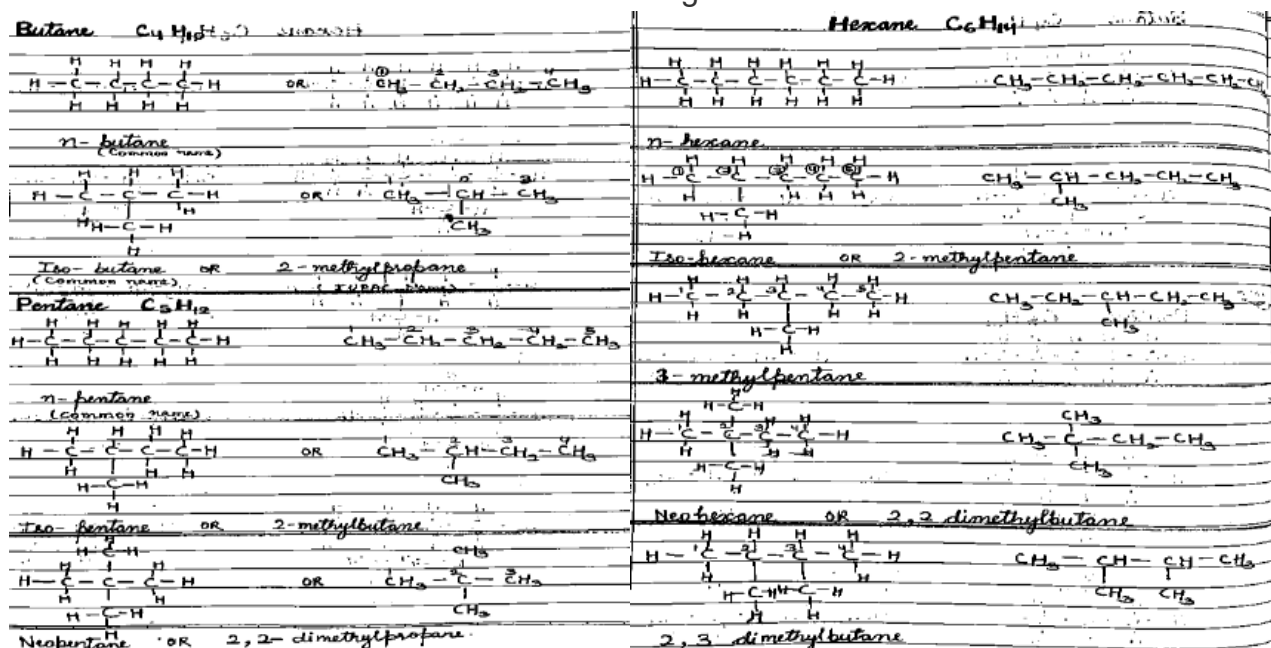 Butane C4H10
H H H H
H-C-C-C-C-H OR CH3-CH2-CH2-CH3
H H H H
n-butane
(common name)
H H H
H-C-C-C-H OR CH3-CH-CH3
H H
H-C-H CH3
H
Iso-butane OR 2-methylpropane
(common name) (IUPAC name)
Pentane C5H12
H H H H H
H-C-C-C-C-C-H CH3-CH2-CH2-CH2-CH3
H H H H H
n-pentane
(common name)
H H H H
H-C-C-C-C-H OR CH3-CH-CH2-CH3
H H H
H-C-H CH3
H
Iso-pentane OR 2-methylbutane
H
H-C-H CH3
H H
H-C-C-C-H OR CH3-C-CH3
H H
H-C-H CH3
H
Neopentane OR 2,2-dimethylpropane
Hexane C6H14
H H H H H H
H-C-C-C-C-C-C-H CH3-CH2-CH2-CH2-CH2-CH3
H H H H H H
n-hexane
H H H H H
H-C-C-C-C-C-H CH3-CH-CH2-CH2-CH3
H H H H
H-C-H CH3
-H
Iso-hexane OR 2-methylpentane
H H H H H
H-C-C-C-C-C-H CH3-CH2-CH-CH2-CH3
H H H H
H-C-H CH3
H
3-methylpentane
H
H-C-H CH3
H H H
H-C-C-C-C-H CH3-C-CH2-CH3
H H H
H-C-H CH3
H
Neohexane OR 2,2 dimethylbutane
H H H H
H-C-C-C-C-H CH3-CH-CH-CH3
H H
H-C-H H-C-H CH3 CH3
H H
2,3 dimethylbutane